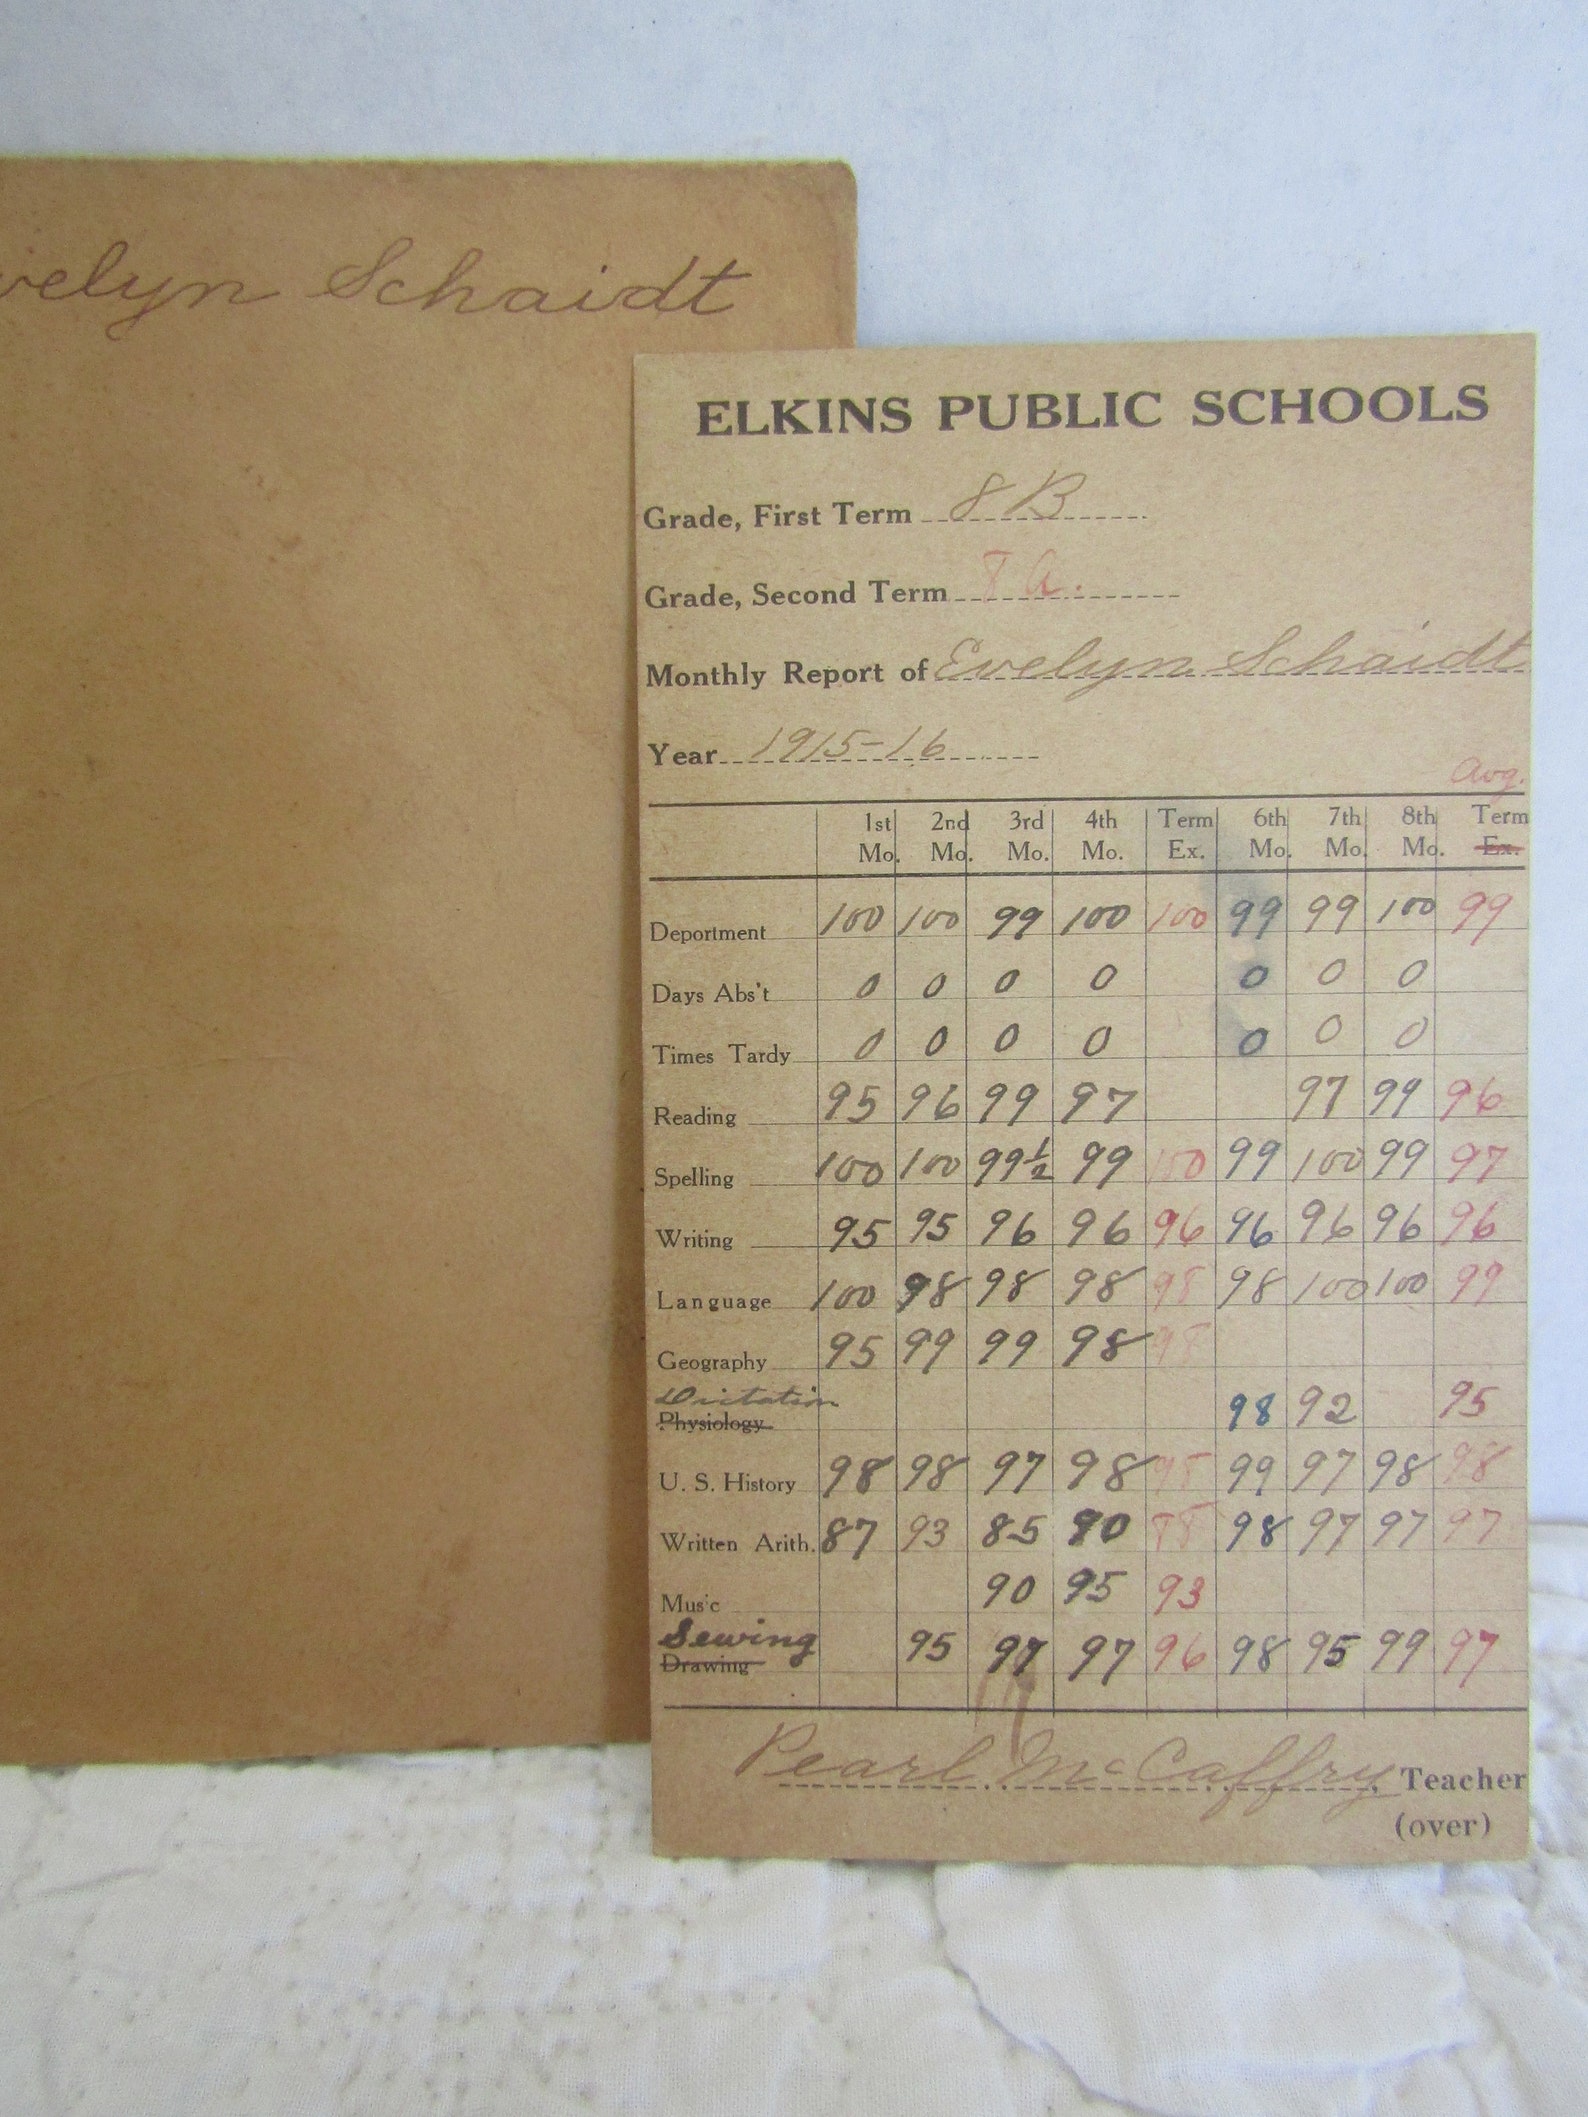 velyn Schaidt
ELKINS PUBLIC SCHOOLS
Grade, First Term 8 B
Grade, Second Term 8 A.
Monthly Report of Evelyn Schaidt
Year 1915-16
Avg.
1st Mo. 2nd Mo. 3rd Mo. 4th Mo. Term Ex. 6th Mo. 7th Mo. 8th Mo. Term Ex.
Deportment 100 100 99 100 100 99 99 100 99
Days Abs't 0 0 0 0 0 0 0
Times Tardy 0 0 0 0 0 0 0
Reading 95 96 99 97 97 99 96
Spelling 100 100 99½ 99 100 99 100 99 97
Writing 95 95 96 96 96 96 96 96 96
Language 100 98 98 98 98 98 100 100 99
Geography 95 99 99 98 98
Dictation
Physiology 98 92 95
U. S. History 98 98 97 98 98 99 97 98 98
Written Arith. 87 93 85 90 88 98 97 97 97
Music 90 95 93
Sewing
Drawing 95 97 97 96 98 95 99 97
Pearl McCaffry, Teacher
(over)